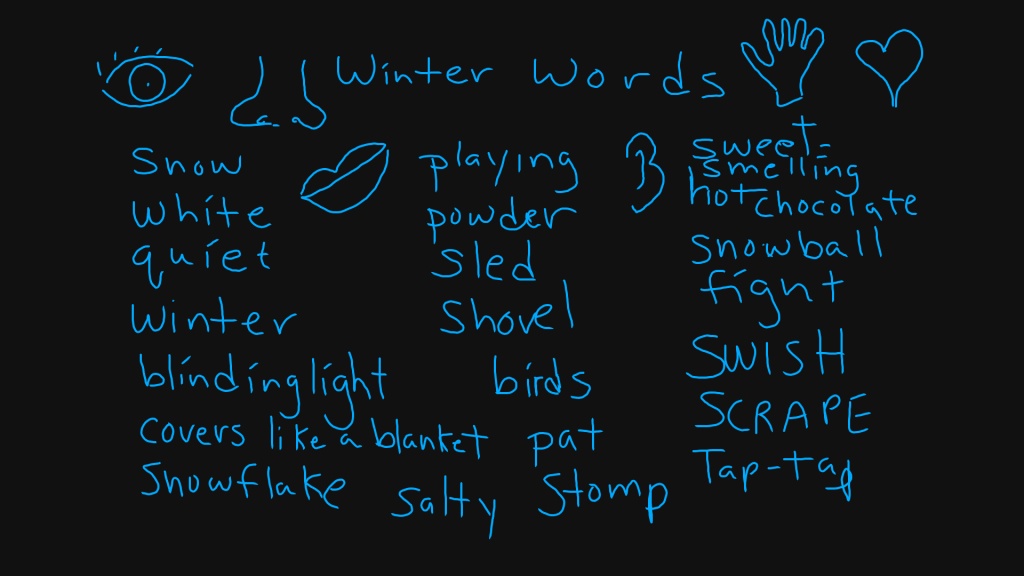 Winter Words
snow
white
quiet
winter
blinding light
covers like a blanket
Snowflake
salty
playing
powder
sled
shovel
birds
pat
Stomp
sweet-
smelling
hot chocolate
snowball
fignt
SWISH
SCRAPE
Tap-tap